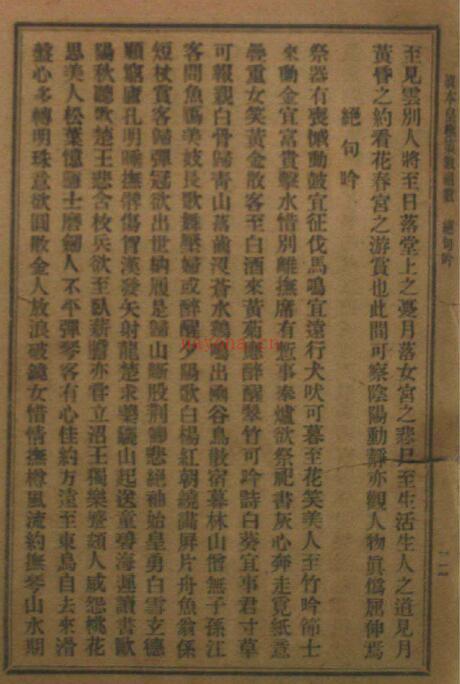 至見雲別人將至日落堂上之憂月落女宮之悲日至生活生人之道見月
黃昏之約看花春宮之游賞也此間可察陰陽動靜亦觀人物眞僞屈伸焉
絕句吟
祭器有喪憾動鼓宜征伐馬鳴宜遠行犬吠可暮至花笑美人至竹吟節士
來動金宜富貴擊水惜別離撫席有暫事奉爐欲祭祀書灰心奔走覓紙意
疊重女笑黃金散客至白酒來黃菊應醉醒翠竹可吟詩白葵宜事君寸草
可報親白骨歸青山落齒浸蒼水鶯鳴出幽谷鳥散宿暮林山僧無子孫江
客問魚鷗美妓長歌舞婦或醉醒夕陽歌白楊紅朝繞屏片舟魚翁係
短杖賞客歸彈冠欲出世納履是歸山斷股荆卿悲絕袖始皇勇白雲玄德
顧廬孔明睡撫髀傷智漢發矢射龍楚求藥驪山起送童碧海遲讀書歐
陽秋聽歌楚王悲含枚兵欲至臥薪亦甞立沼王獨樂登人咸怨桃花
思美人松葉憶隱士磨劍人不平彈琴客有心佳約方遠至東鳥自去來滑
盤心多轉明珠意欲圓散金人放浪破鏡女惜情撫樽風流約撫琴山水期
絕句吟
nayona.cn